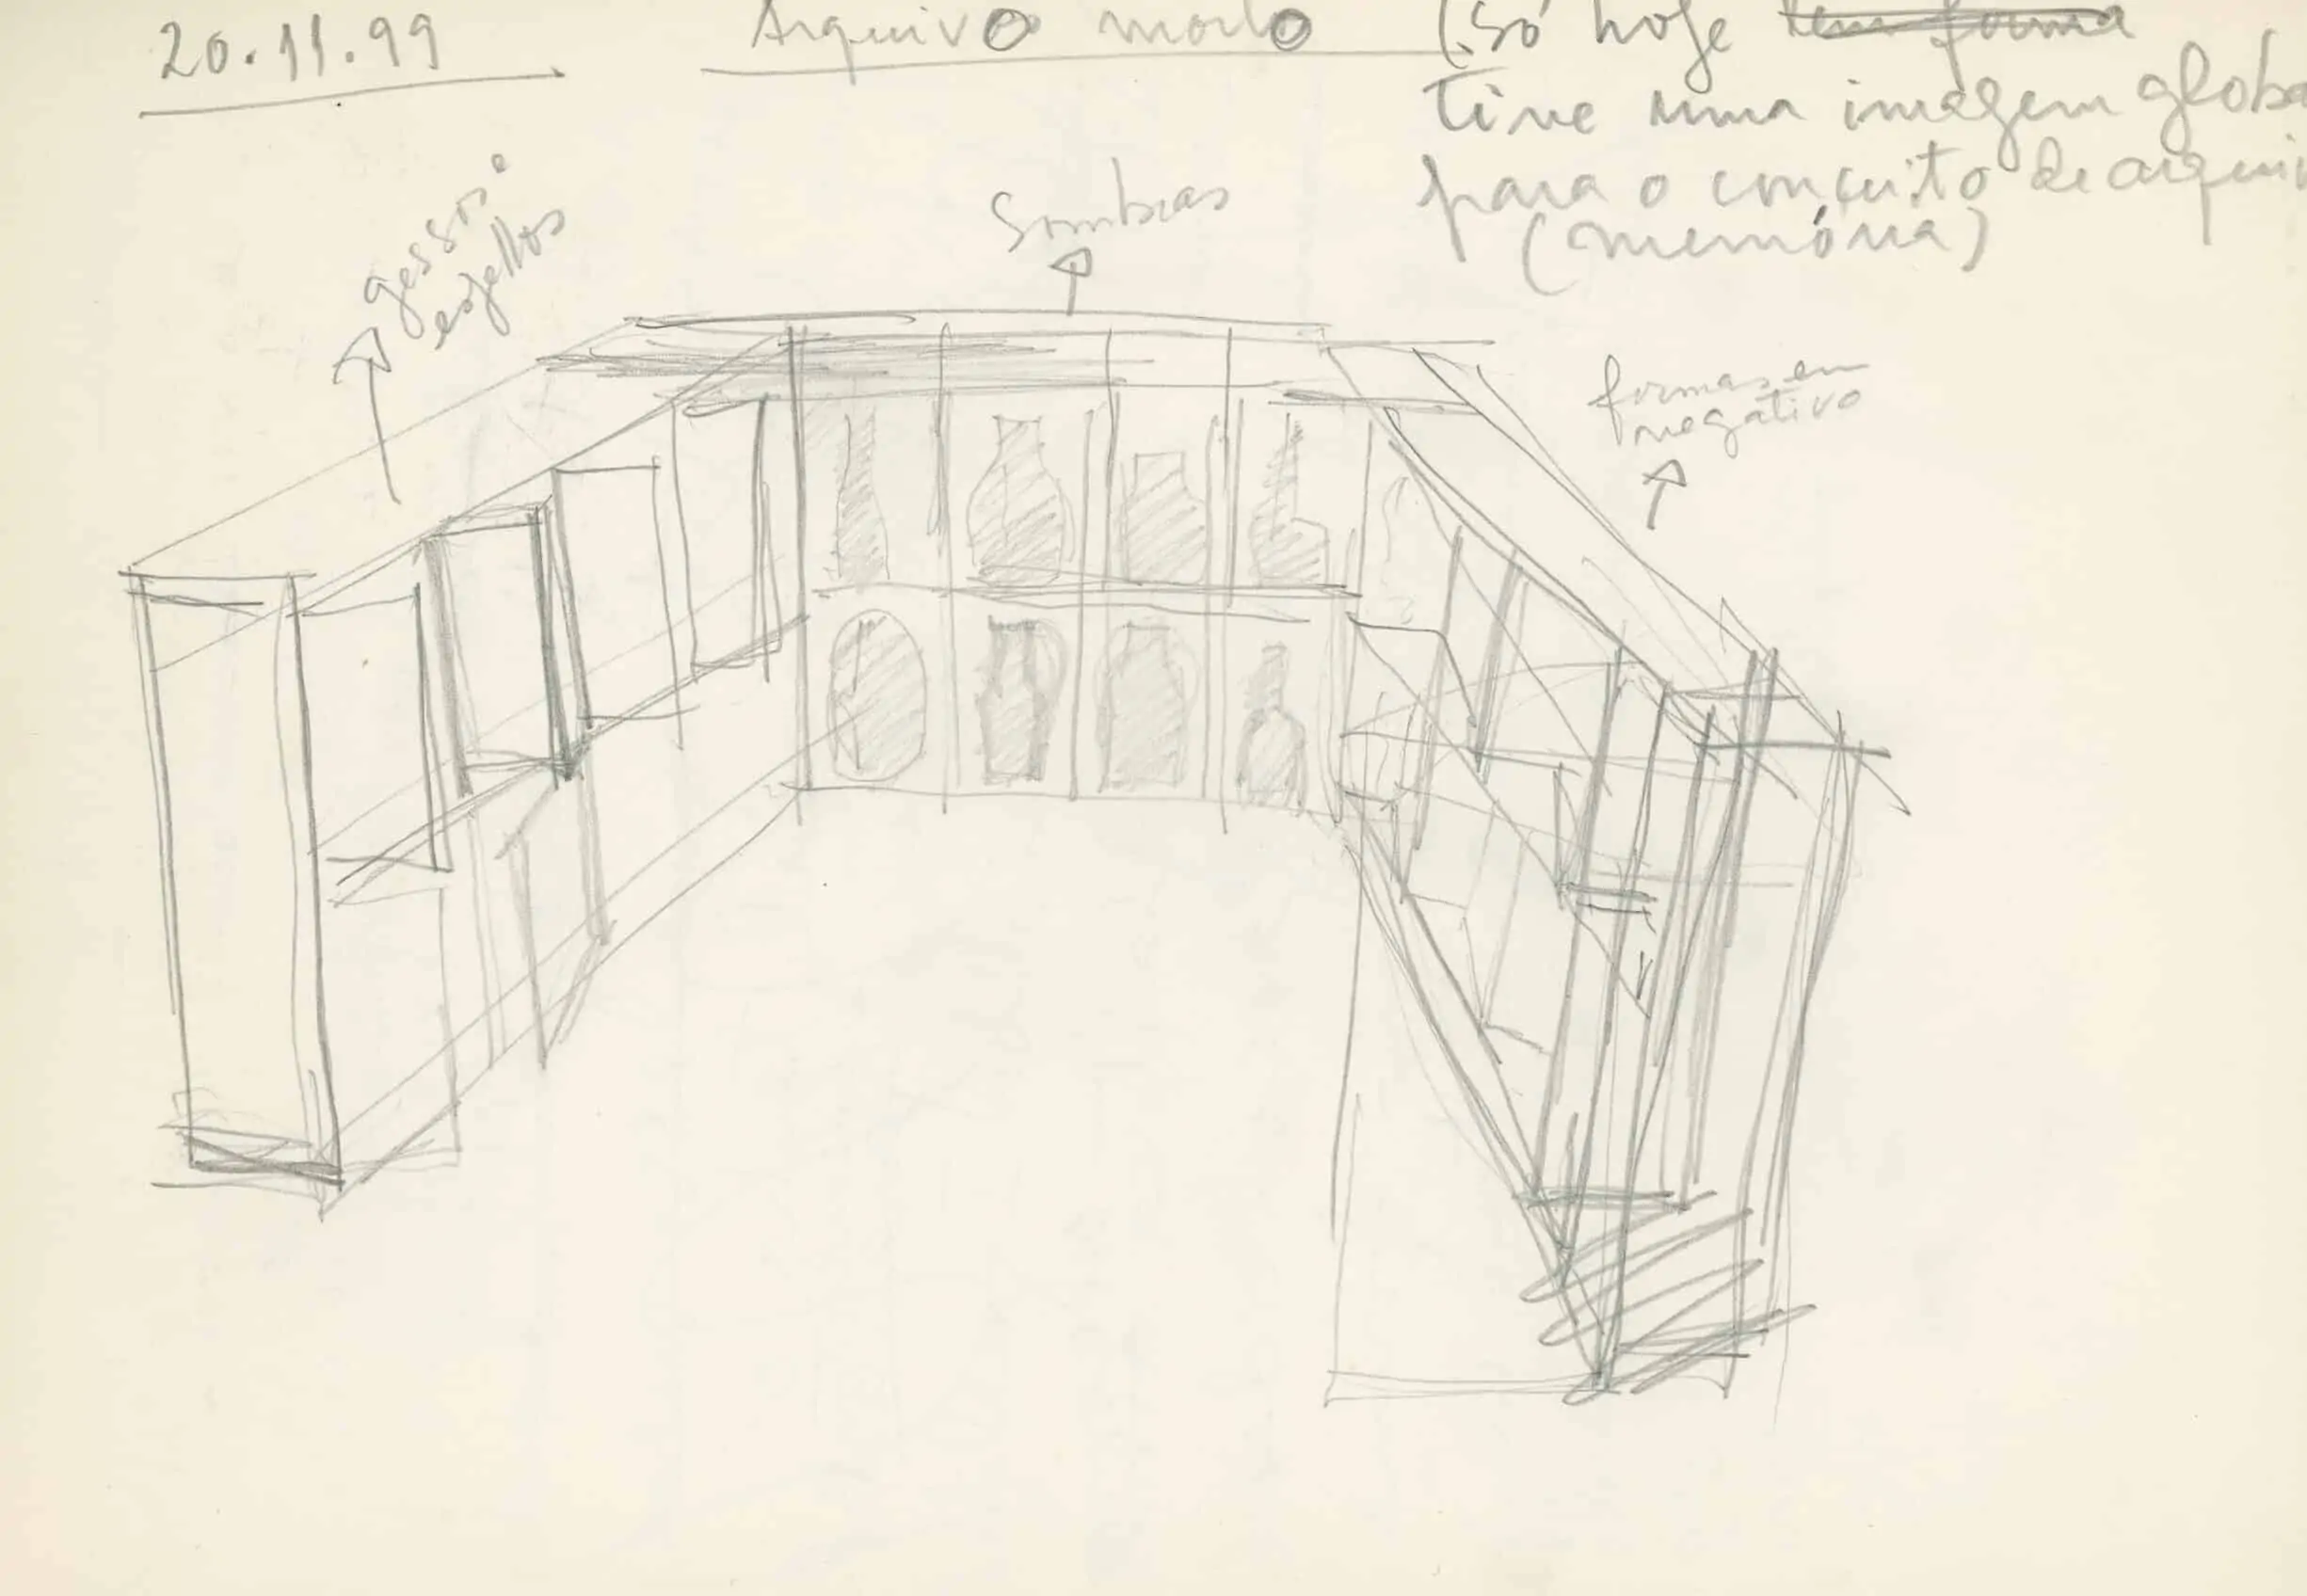 20.11.99
Arquivo morto
(só hoje tem forma
tive uma imagem globa
para o conceito de arqui
(memória)
gessos e
espelhos
Sombras
formas em
negativo